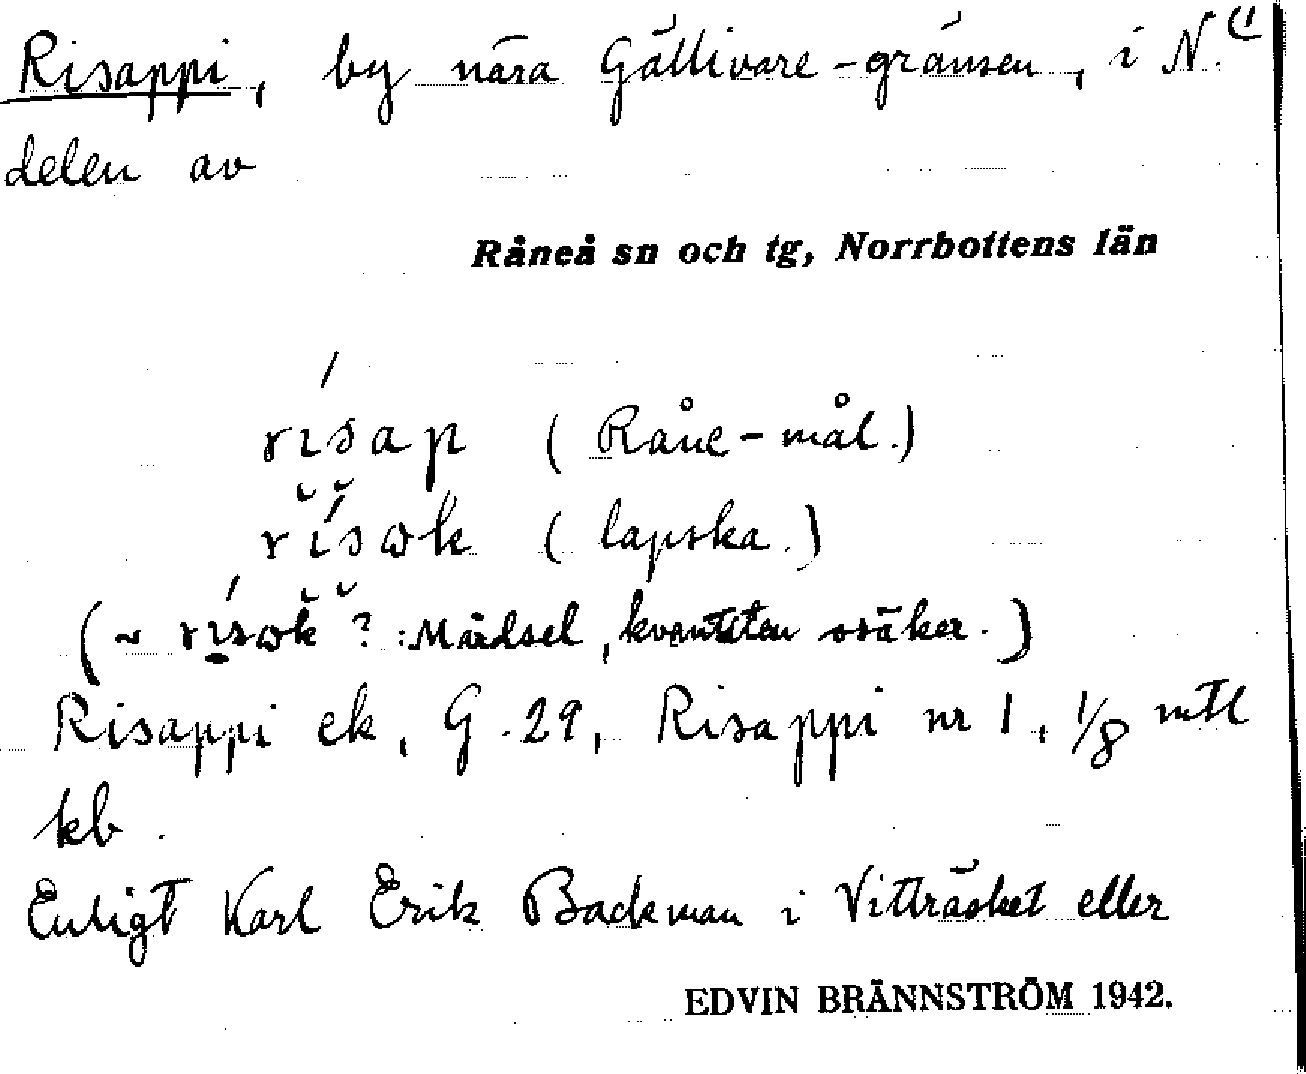 Risappi, by nära Gällivare-gränsen, i N. (1
delen av
Råneå sn och tg, Norrbottens län
rísap (Råne-mål.)
rísωk (lapska.)
(~ rísωk ? : Mårdsel, kvantiteten osäker.)
Risappi ek, G. 29, Risappi nr 1, 1/8 mtl
kb.
Enligt Karl Erik Backman i Vitträsket eller
EDVIN BRÄNNSTRÖM 1942.